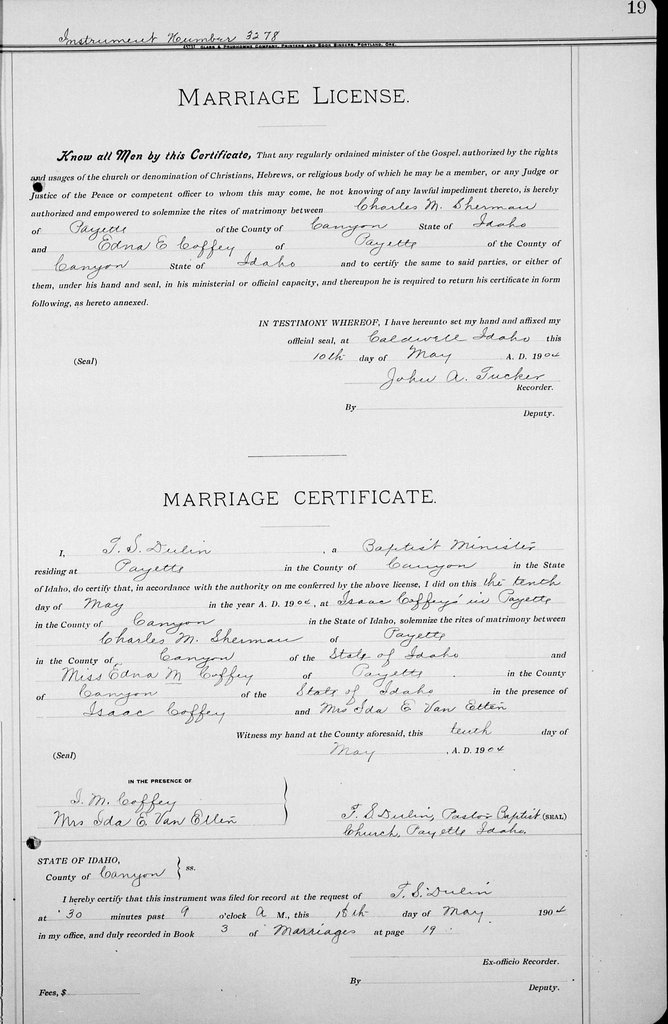 19
Instrument Number 3278
MARRIAGE LICENSE.
Know all Men by this Certificate, That any regularly ordained minister of the Gospel, authorized by the rights
and usages of the church or denomination of Christians, Hebrews, or religious body of which he may be a member, or any Judge or
Justice of the Peace or competent officer to whom this may come, he not knowing of any lawful impediment thereto, is hereby
authorized and empowered to solemnize the rites of matrimony between Charles M. Sherman
of Payette of the County of Canyon State of Idaho
and Edna E Coffey of Payette of the County of
Canyon State of Idaho and to certify the same to said parties, or either of
them, under his hand and seal, in his ministerial or official capacity, and thereupon he is required to return his certificate in form
following, as hereto annexed.
IN TESTIMONY WHEREOF, I have hereunto set my hand and affixed my
official seal, at Caldwell Idaho this
(Seal) 10th day of May A. D. 1904
John A. Tucker
Recorder.
By
Deputy.
MARRIAGE CERTIFICATE.
I, T. S. Dulin, a Baptist Minister
residing at Payette in the County of Canyon in the State
of Idaho, do certify that, in accordance with the authority on me conferred by the above license, I did on this the tenth
day of May in the year A. D. 1904, at Isaac Coffeys' in Payette
in the County of Canyon in the State of Idaho, solemnize the rites of matrimony between
Charles M. Sherman of Payette
in the County of Canyon of the State of Idaho and
Miss Edna M Coffey of Payette in the County
of Canyon of the State of Idaho in the presence of
Isaac Coffey and Mrs Ida E Van Etten
Witness my hand at the County aforesaid, this tenth day of
(Seal) May, A. D. 1904
IN THE PRESENCE OF
I. M. Coffey
Mrs Ida E. Van Etten
T. S. Dulin, Pastor Baptist (SEAL)
Church, Payette Idaho.
STATE OF IDAHO,
County of Canyon ss.
I hereby certify that this instrument was filed for record at the request of T. S. Dulin
at 30 minutes past 9 o'clock A M., this day of May 1904
in my office, and duly recorded in Book 3 of Marriages at page 19
Ex-officio Recorder.
By
Fees, $ Deputy.